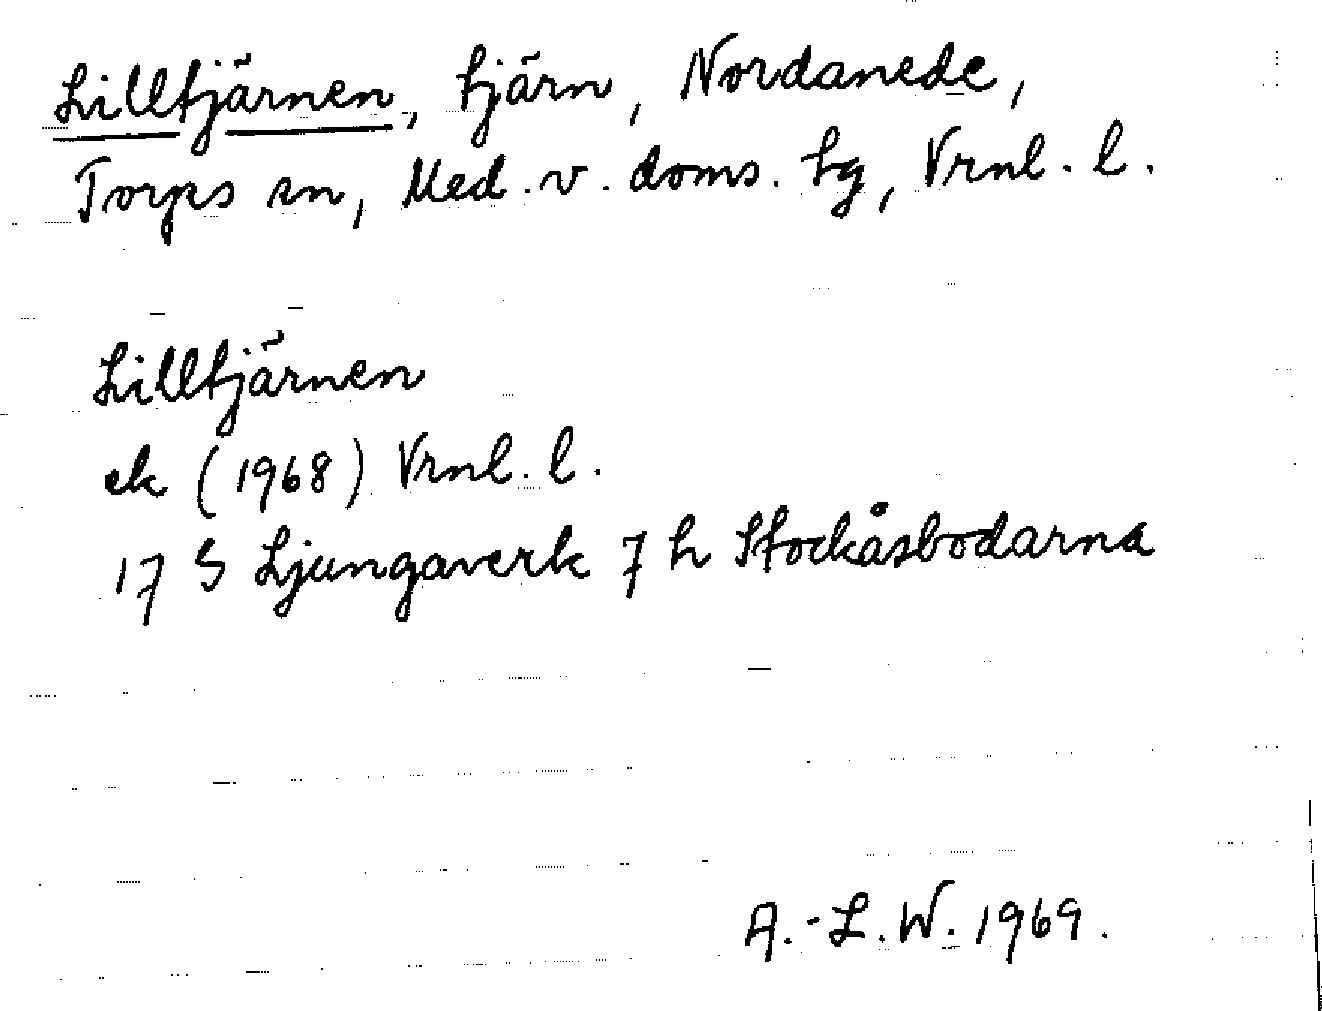 Lilltjärnen, tjärn, Nordanede,
Torps sn, Med. v. doms. tg, Vrnl. l.
Lilltjärnen
ek (1968) Vrnl. l.
17 S Ljungaverk 7 h Stockåsbodarna
A.-L. W. 1969.